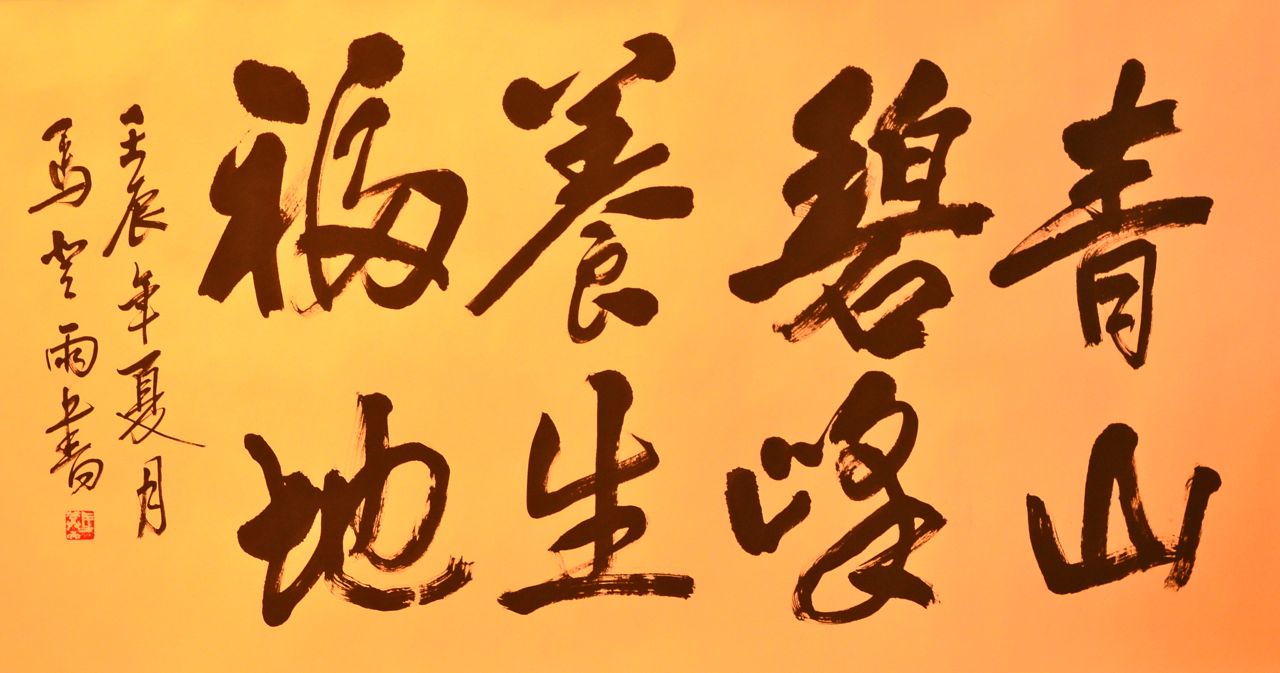 青山
碧峰
養生
福地
壬辰年夏月
馬登雨書